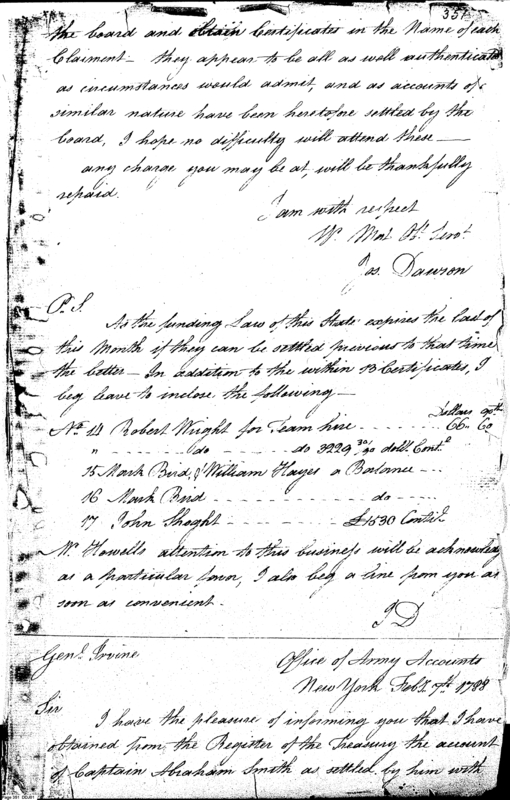 357
the board and obtain Certificates in the Name of each
Claiment - they appear to be all as well authenticated
as circumstances would admit, and as accounts of
similar nature have been heretofore settled by the
board, I hope no difficulty will attend these —
any charge you may be at, will be thankfully
repaid.
I am with respect
Yr. Most Obt. Servt.
Jos. Dawson
P. S.
As the funding Law of this State expires the last of
this Month if they can be settled previous to that time
the better - In addition to the within 13 Certificates, I
beg leave to inclose the following —
Dollars 90ths
No. 14 Robert Wright for Team hire - - - - - - - - 66. 60
" - - - - - do - - - - - do 3229 30/90 dolls. Contl.
15 Mark Bird & William Hayes a Balance - - - -
16 Mark Bird - - - - - - - - - - do - - - -
17 John Sheght - - - - - - - - £1530 Contil.
Mr. Howells attention to this business will be acknowledg
as a particular favor, I also beg a line from you as
soon as convenient.
J D
Genl. Irvine
Office of Army Accounts
New York Feby. 7th. 1788
Sir
I have the pleasure of informing you that I have
obtained from the Register of the Treasury the account
of Captain Abraham Smith as settled by him with